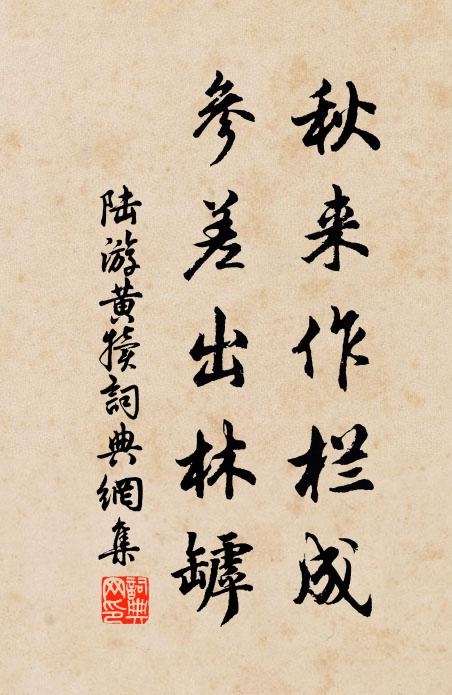 秋来作栏成
参差出林罅
陆游黄犊词典網集
詞典网印